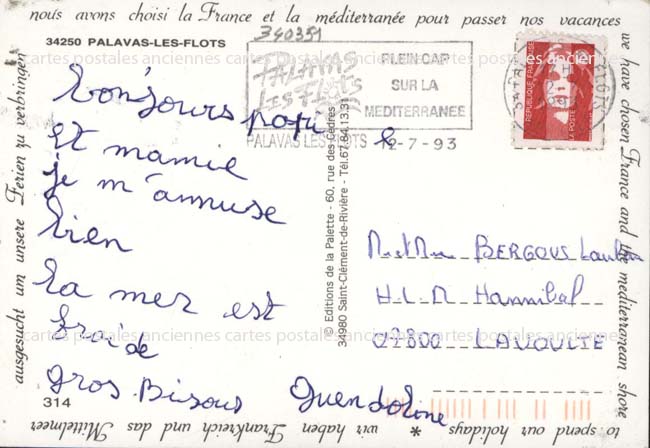 nous avons choisi la France et la méditerranée pour passer nos vacances
we have chosen France and the mediterranean shore
to spend our holidays * wir haben Frankreich und das Mittelmeer
ausgesucht um unsere Ferien zu verbringen
34250 PALAVAS-LES-FLOTS
340351
PALAVAS
LES FLOTS
PLEIN CAP
SUR LA
MEDITERRANEE
PALAVAS LES FLOTS
12-7-93
REPUBLIQUE FRANÇAISE
LA POSTE
cartes postales anciennes cartes postales anciennes cartes postales anciennes
bonjours papi
et mamie
je m'annuse
bien
la mer est
froide
gros Bisous Guendoline
© Editions de la Palette - 60, rue des Cèdres
34980 Saint-Clément-de-Rivière - Tél. 67.84.13.31
Mr et Mme BERGOUS
H L M Hannibal
07800 LAVOULTE
cartes postales anciennes cartes postales anciennes cartes postales anciennes
314